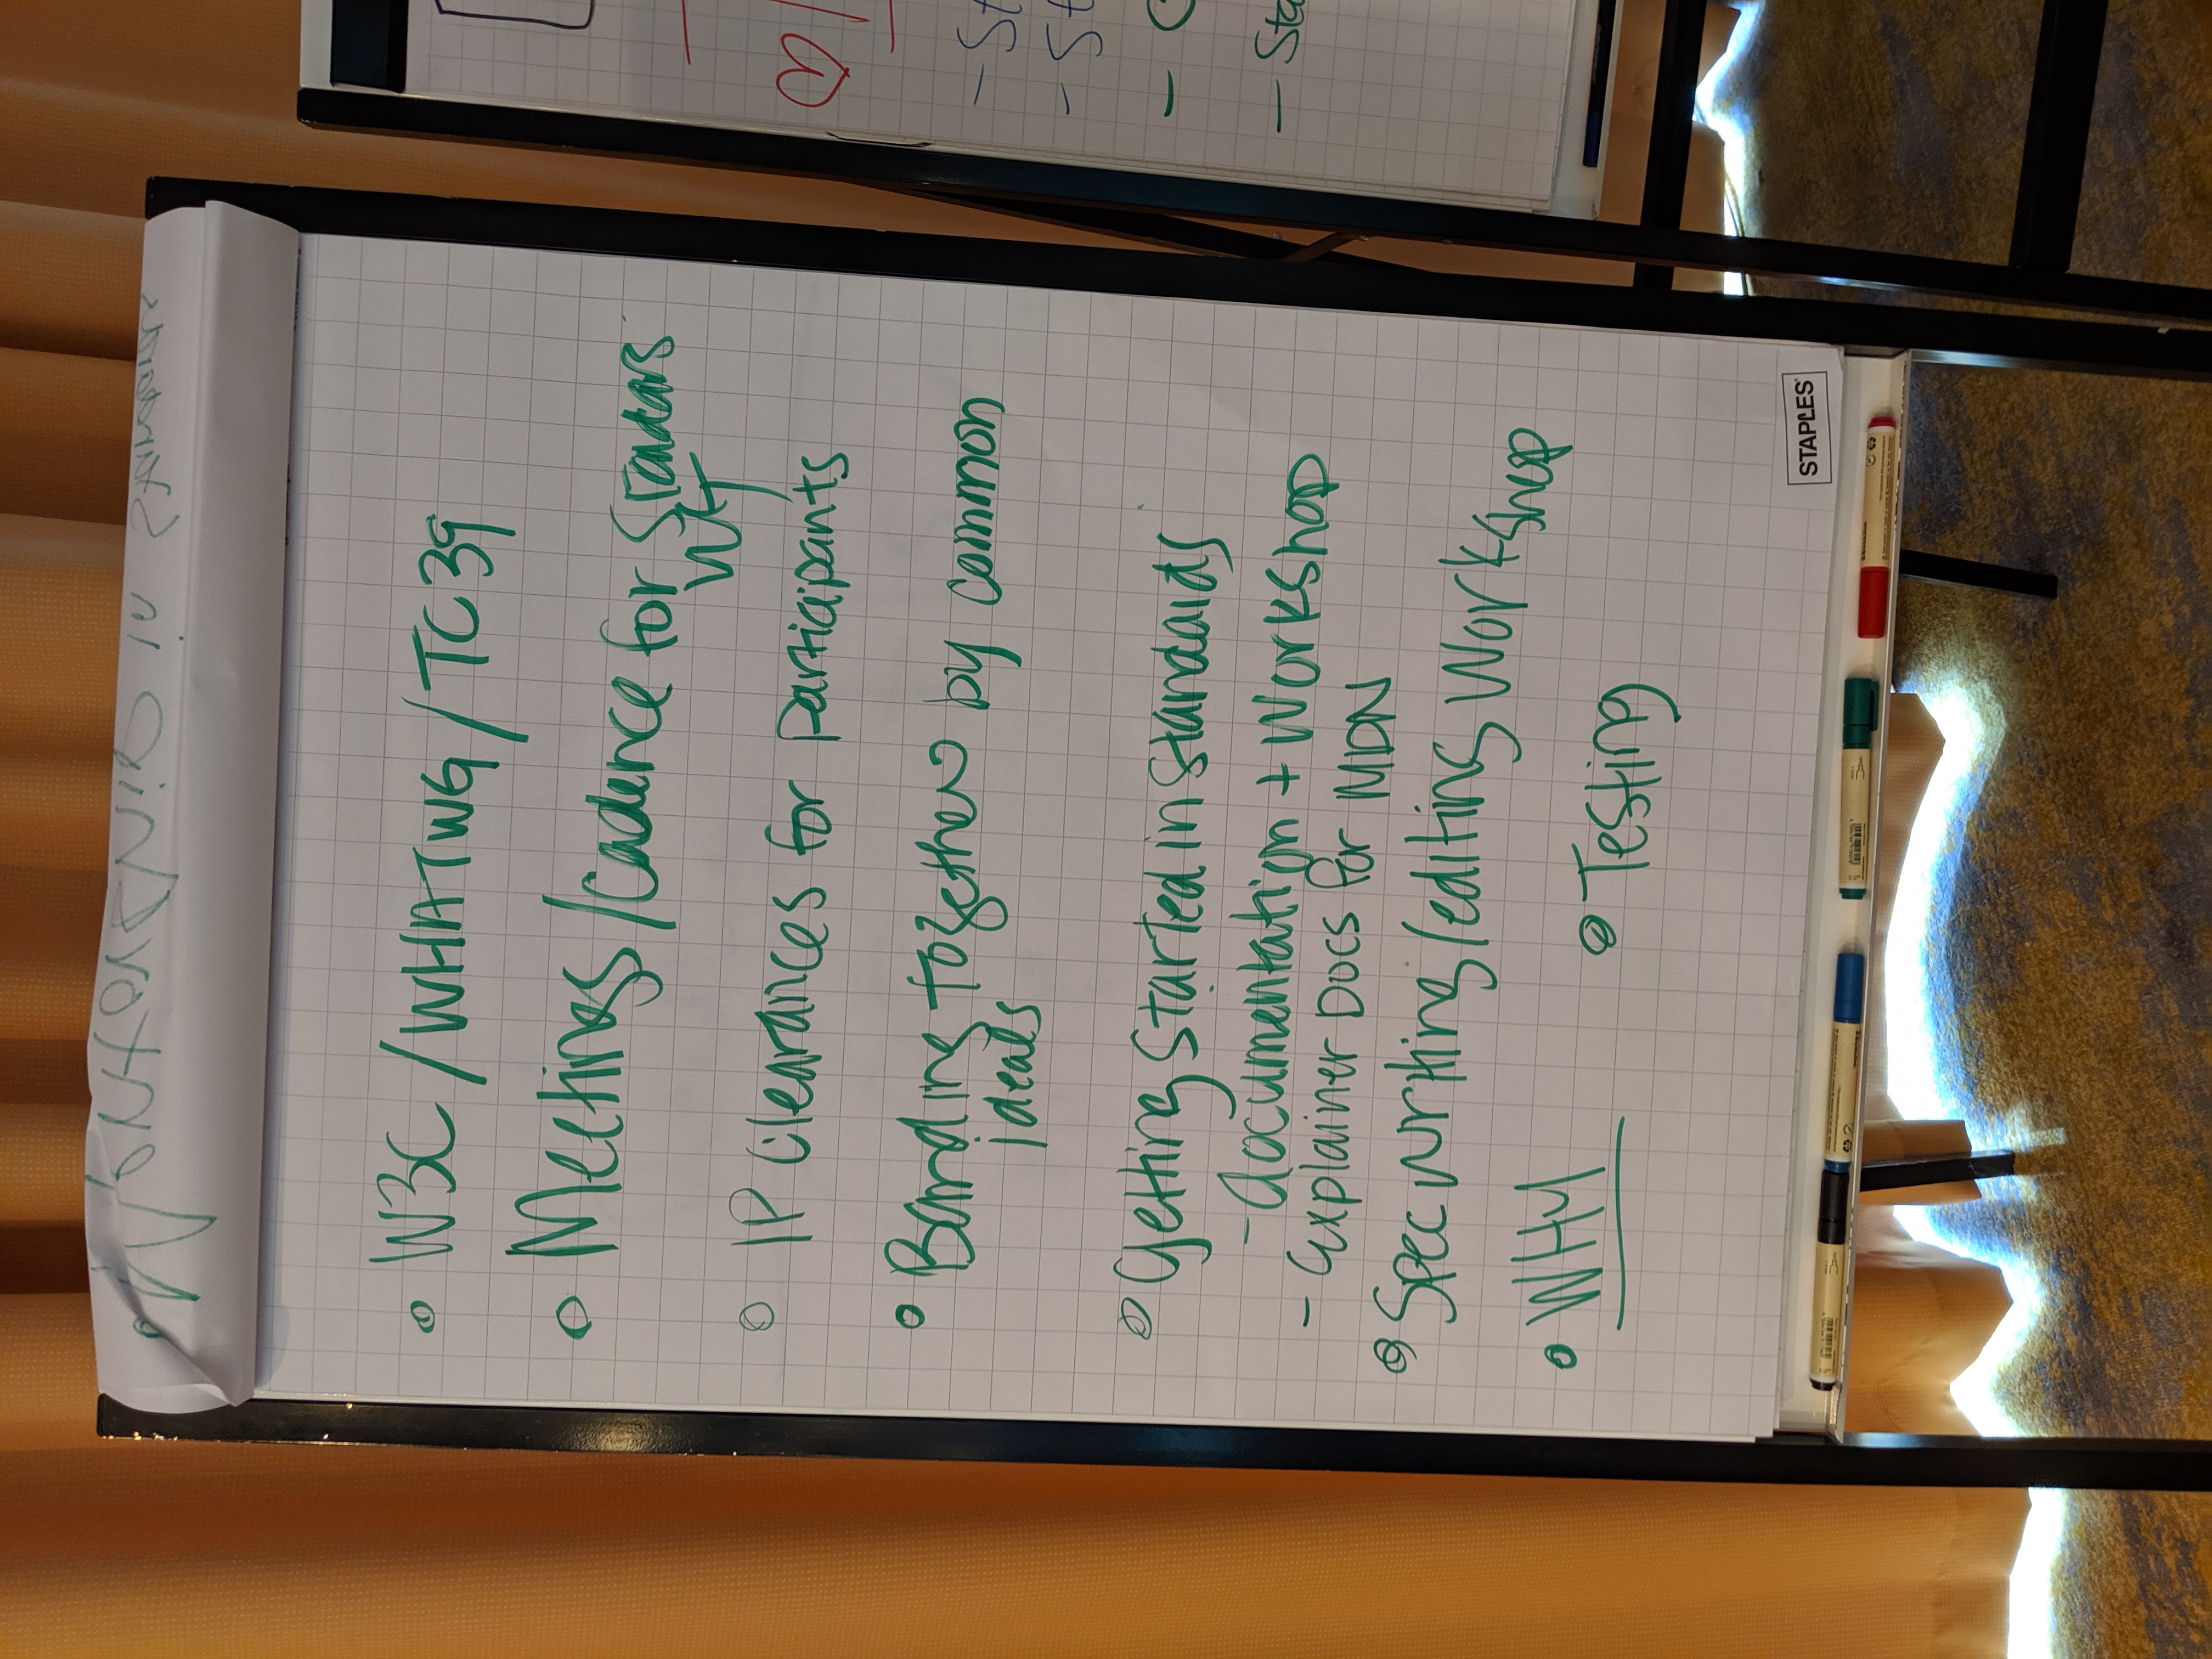 Mentorship in Standards
W3C / WHATWG / TC39
Meetings / Cadence for Standars
WG
IP Clearances for Participants
Banding together by common
ideals
Getting started in standards
- documentation + Workshop
- Explainer Docs for MDN
Spec writing / editing Workshop
WHY
Testing
STAPLES
- St
- St
-
- Sta